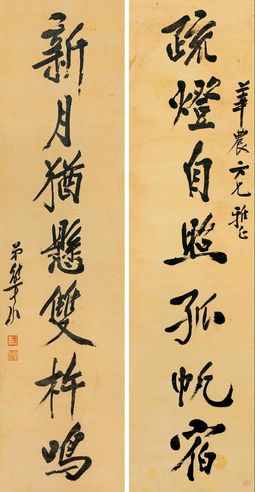 華農六兄雅正
疏燈自照孤帆宿
新月猶懸雙杵鳴
弟